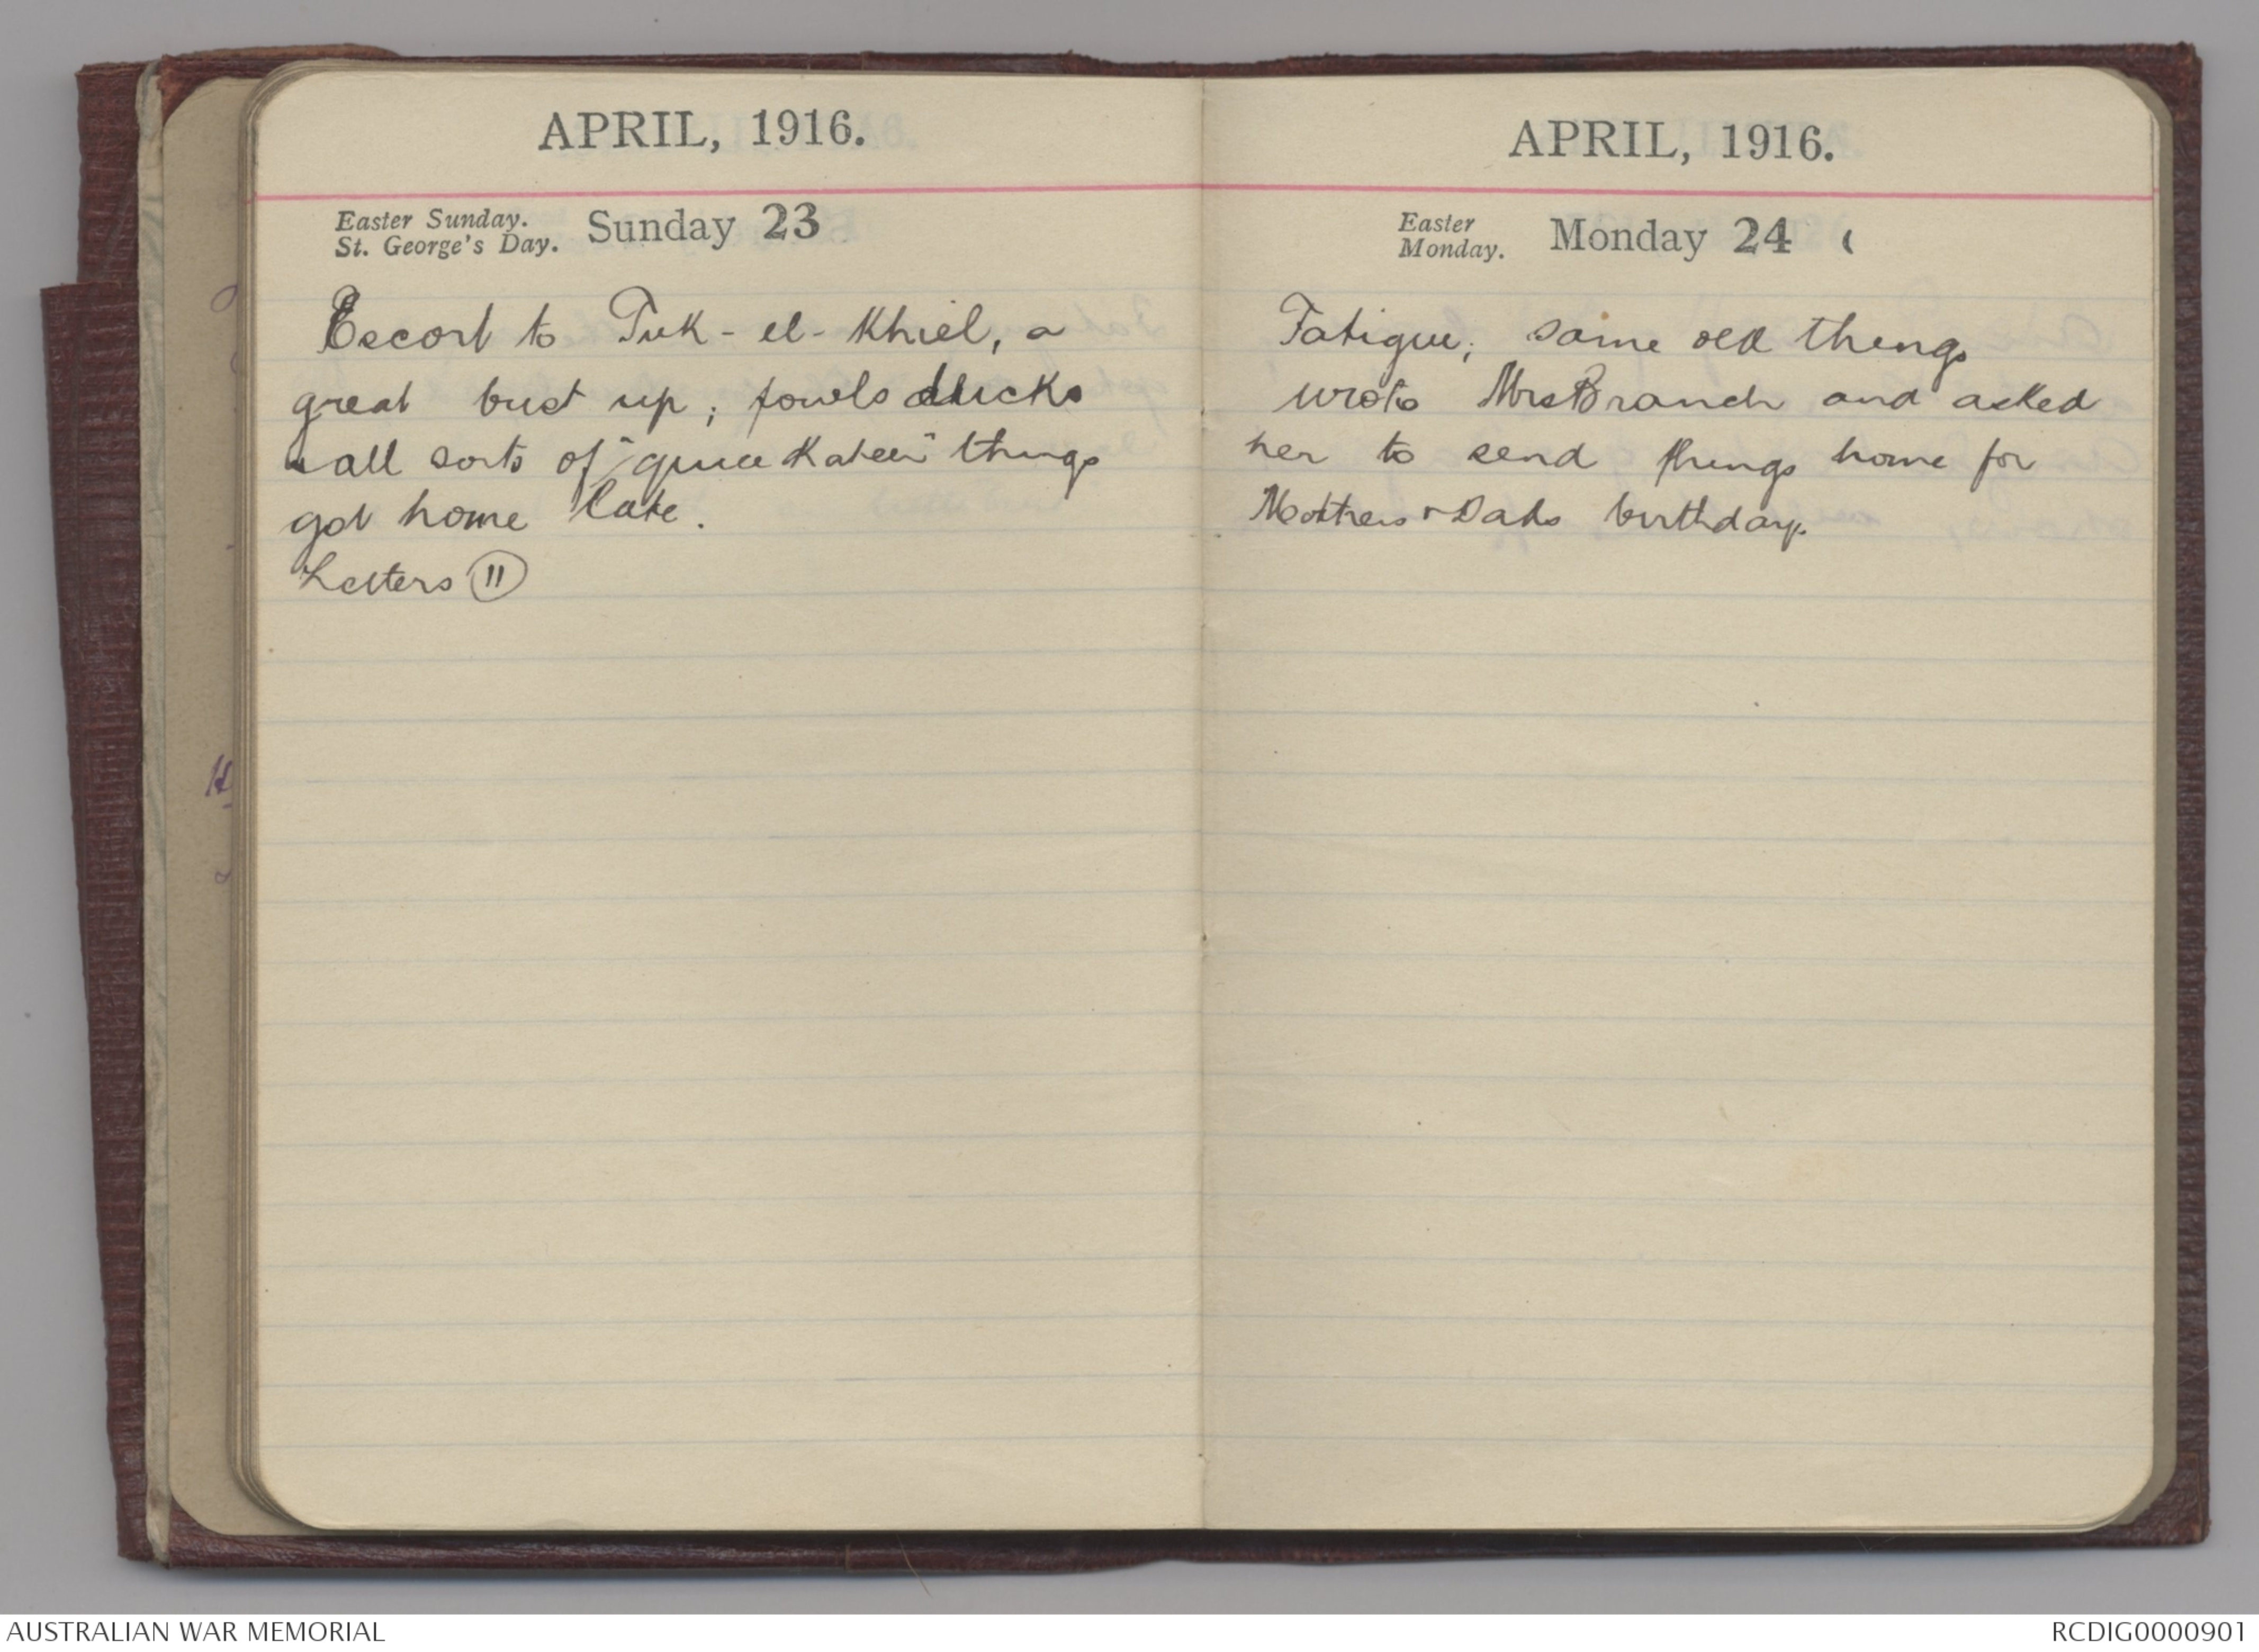 APRIL, 1916.
Easter Sunday.
St. George's Day. Sunday 23
Escort to Tuk-el-Khiel, a
great bust up; fowls ducks
all sorts of "quice Kateer" things
got home late.
Letters 11
APRIL, 1916.
Easter
Monday. Monday 24
Fatigue; same old things
wrote Mrs Branch and asked
her to send things home for
Mothers & Dads birthday.
AUSTRALIAN WAR MEMORIAL
RCDIG0000901